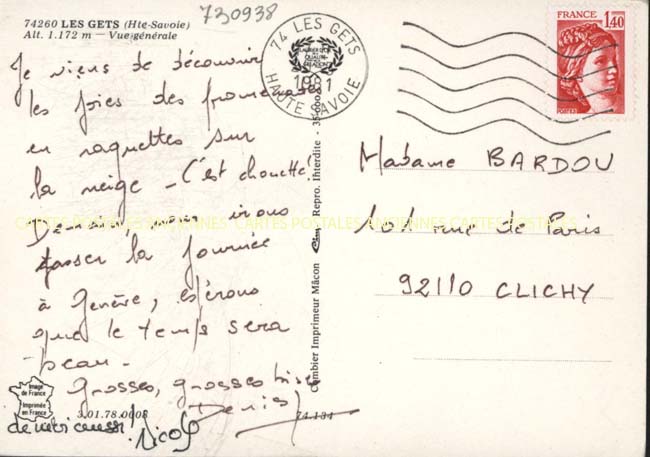 730938
74260 LES GETS (Hte-Savoie)
Alt. 1.172 m — Vue générale
Je viens de découvrir
les joies des promenades
en raquettes sur
la neige - C'est chouette!
Demain, nous irons
passer la journée
à Genève, espérons
que le temps sera
beau -
Grosses, grosses bises
Denis
de moi aussi! Nicole
Image
de France
Imprimée
en France
3.01.78.0008
74.134
Combier Imprimeur Mâcon
Repro. Interdite - 35
74 LES GETS
1981
HAUTE SAVOIE
FRANCE
1,40
POSTES
Madame BARDOU
104 rue de Paris
92110 CLICHY
CARTES POSTALES ANCIENNES CARTES POSTALES ANCIENNES CARTES POSTALES